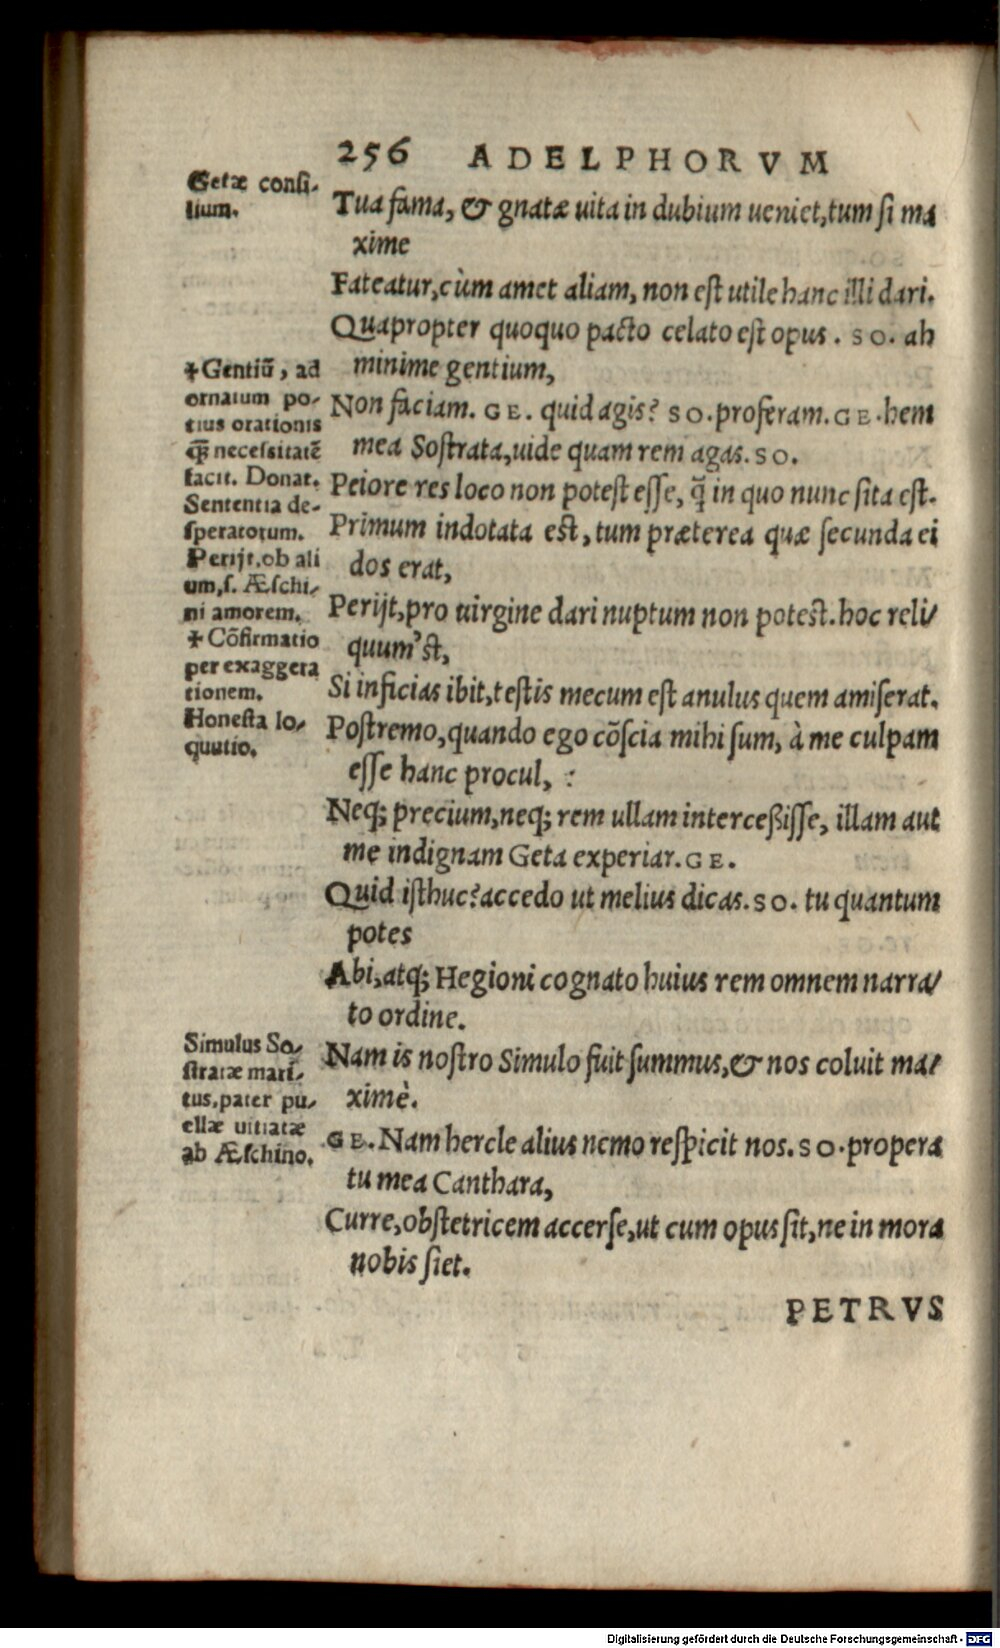 256 ADELPHORVM
Getæ consi-
lium.
Tua fama, & gnatæ uita in dubium ueniet, tum si ma
xime
Fateatur, cùm amet aliam, non est utile hanc illi dari.
Quapropter quoquo pacto celato est opus. SO. ah
minime gentium,
✢Gentiũ, ad
ornatum po-
tius orationis
q̃ necessitatẽ
facit. Donat.
Sententia de-
speratorum.
Perijt. ob ali
um, s. Æschi-
ni amorem.
✢Cõfirmatio
per exaggera
tionem.
Honesta lo-
quutio.
Non faciam. GE. quid agis? SO. proferam. GE. hem
mea Sostrata, uide quam rem agas. SO.
Peiore res loco non potest esse, q̃ in quo nunc sita est.
Primum indotata est, tum præterea quæ secunda ei
dos erat,
Perijt, pro uirgine dari nuptum non potest. hoc reli-
quum'st,
Si inficias ibit, testis mecum est anulus quem amiserat.
Postremo, quando ego cõscia mihi sum, à me culpam
esse hanc procul, :
Neq; precium, neq; rem ullam intercessisse, illam aut
me indignam Geta experiar. GE.
Quid isthuc? accedo ut melius dicas. SO. tu quantum
potes
Abi, atq; Hegioni cognato huius rem omnem narra-
to ordine.
Simulus So-
stratæ mari-
tus, pater pu-
ellæ uitiatæ
ab Æschino.
Nam is nostro Simulo fuit summus, & nos coluit ma-
ximè.
GE. Nam hercle alius nemo respicit nos. SO. propera
tu mea Canthara,
Curre, obstetricem accerse, ut cum opus sit, ne in mora
nobis siet.
PETRVS
Digitalisierung gefördert durch die Deutsche Forschungsgemeinschaft - DFG